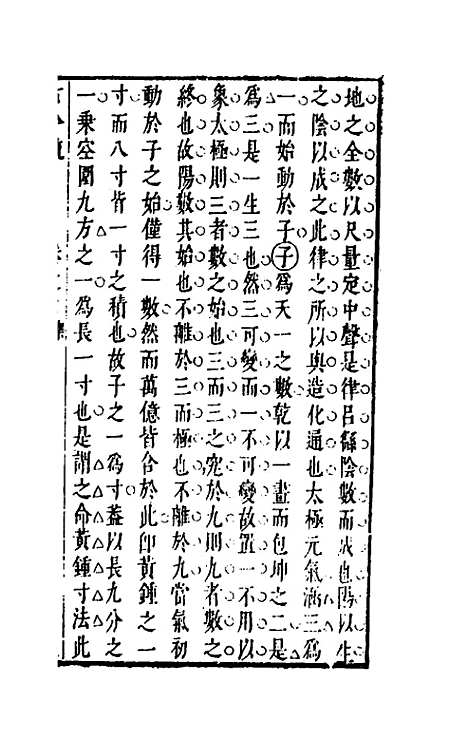 地之全數以尺量定中聲是律呂繇陰數而成也陽以生
之陰以成之此律之所以與造化通也太極元氣涵三爲
一而始動於子子爲天一之數乾以一畫而包坤之二是
爲三是一生三也然三可變而一不可變故置一不用以
象太極則三者數之始也三而三之究於九則九者數之
終也故陽數其始也不離於三而極也不離於九當氣初
動於子之始僅得一數然而萬億皆合於此卽黃鍾之一
寸而八寸皆一寸之積也故子之一爲寸蓋以長九分之
一乘空圍九方之一爲長一寸也是謂之命黃鍾寸法此